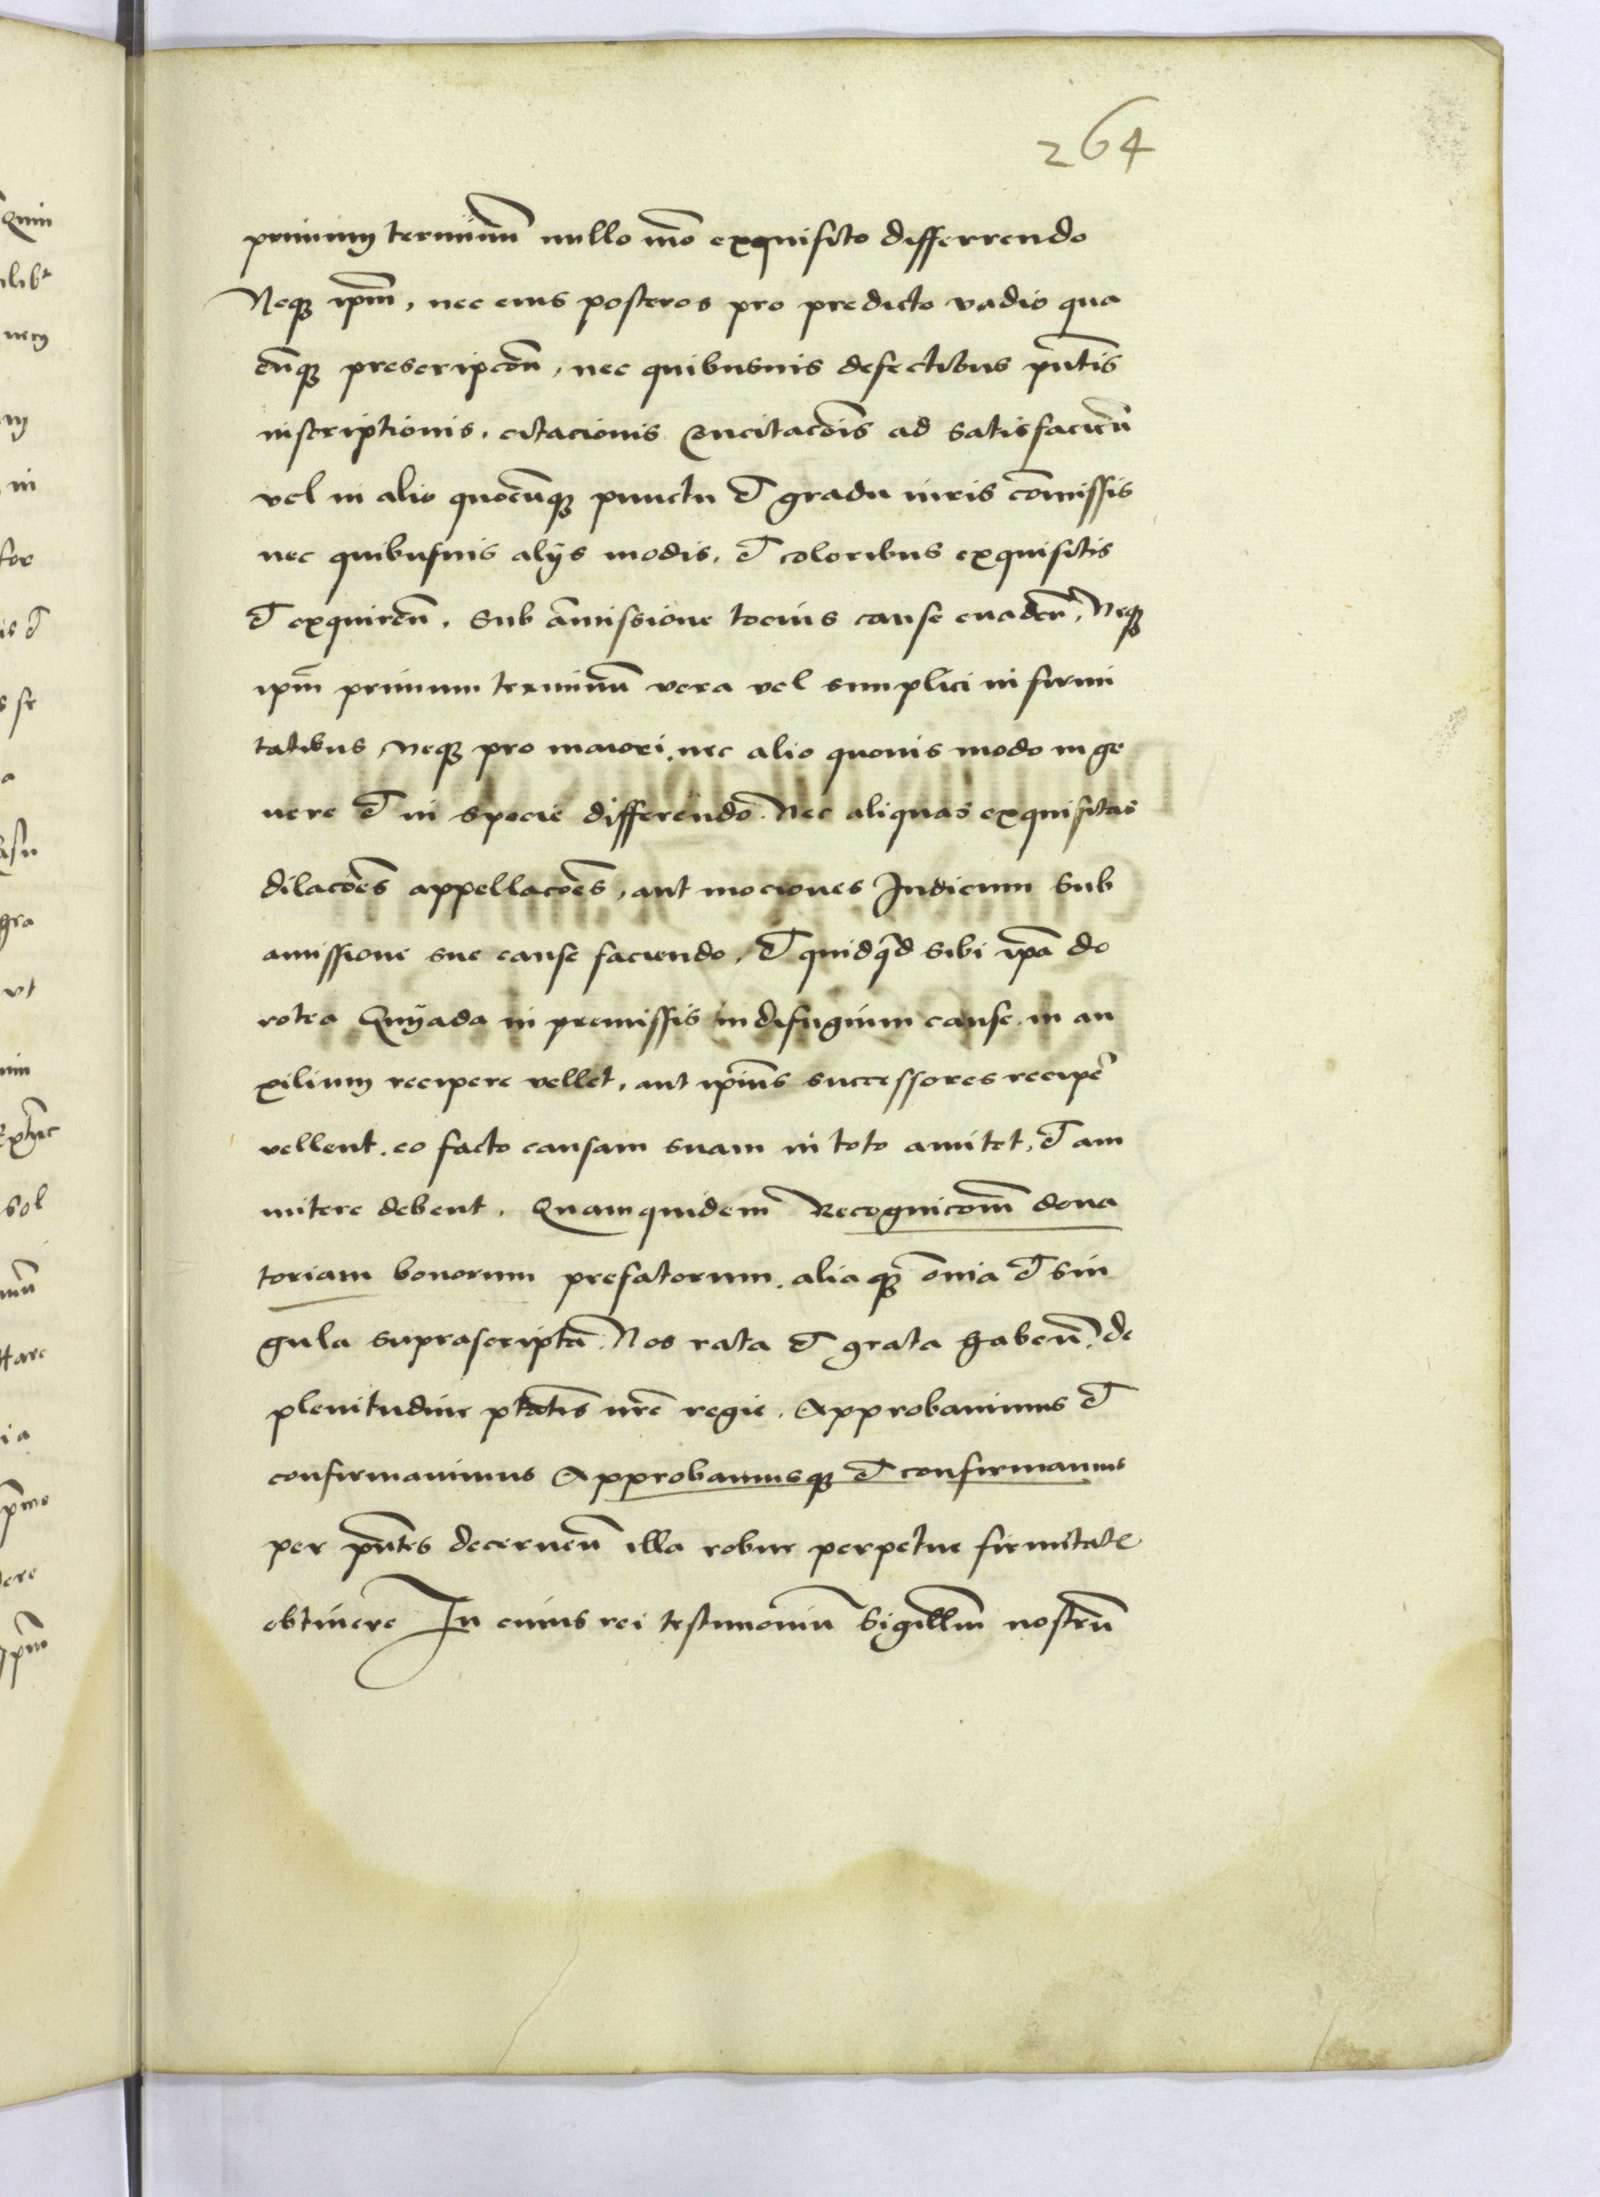 264
primum terminu͞ nullo mo͞ exquisito differrendo
Neqꝫ ipm͞, nec eius posteros pro predicto vadio qua
cu͞qꝫ prescripco͞n, nec quibusuis defectibus pn͞tis
inscriptionis, citacionis Concitaco͞is ad satisfacien͞
vel in alio quocu͞qꝫ punctu et gradu iuris co͞missis
nec quibusuis alijs modis, et coloribus exquisitis
et exquiren͞. Sub a͞missione tocius cause euadere͞, Neqꝫ
ipm͞ primum terminu͞ vera vel simplici infirmi
tatibus, neqꝫ pro maiori, nec alio quouis modo in ge
nere et in specie differendo. Nec aliquas exquisitas
dilaco͞es appellaco͞es, aut mociones Iudicum sub
amissione sue cause faciendo, et quidq͞d sibi ip͞a do
rotea Quyada in premissis in difugium cause, in au
xilium recipere vellet, aut ipi͞us successores recipe͞
vellent, eo facto causam suam in toto amitet, et am
mitere debent. Quamquidem Recognico͞m dona
toriam bonorum prefatorum, aliaqꝫ o͞nia et sin
gula suprascripta. Nos rata et grata haben͞, de
plenitudine ptat͞is nr͞e regie, Approbauimus et
confirmauimus Approbamusqꝫ et confirmamus
per pn͞tes decernen͞ illa robur perpetue firmitat͞
obtinere In cuius rei testimoniu͞ Sigillu͞ nostru͞